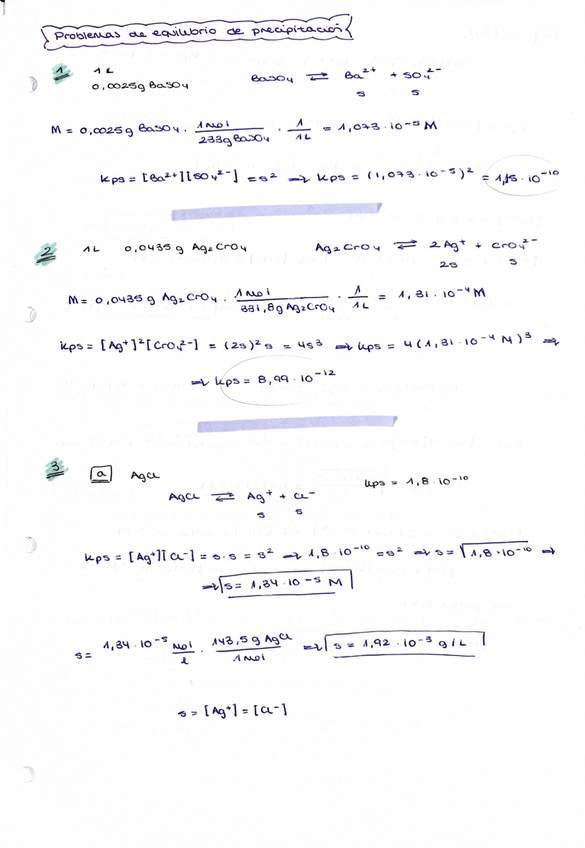 Problemas de equilibrio de precipitación
1 1L
0,0025g BaSO4 BaSO4 ⇄ Ba²⁺ + SO4²⁻
s s
M = 0,0025g BaSO4 · 1 mol / 233g BaSO4 · 1 / 1L = 1,073 · 10⁻⁵ M
Kps = [Ba²⁺][SO4²⁻] = s² → Kps = (1,073 · 10⁻⁵)² = 1,15 · 10⁻¹⁰
2 1L 0,0435 g Ag2CrO4 Ag2CrO4 ⇄ 2Ag⁺ + CrO4²⁻
2s s
M = 0,0435 g Ag2CrO4 · 1 mol / 331,8g Ag2CrO4 · 1 / 1L = 1,31 · 10⁻⁴ M
Kps = [Ag⁺]²[CrO4²⁻] = (2s)² s = 4s³ ⇒ Kps = 4(1,31 · 10⁻⁴ M)³ ⇒
⇒ Kps = 8,99 · 10⁻¹²
3 a AgCl Kps = 1,8 · 10⁻¹⁰
AgCl ⇄ Ag⁺ + Cl⁻
s s
Kps = [Ag⁺][Cl⁻] = s · s = s² → 1,8 · 10⁻¹⁰ = s² ⇒ s = √1,8 · 10⁻¹⁰ ⇒
⇒ s = 1,34 · 10⁻⁵ M
s = 1,34 · 10⁻⁵ mol / l · 143,5g AgCl / 1 mol ⇒ s = 1,92 · 10⁻³ g/L
s = [Ag⁺] = [Cl⁻]